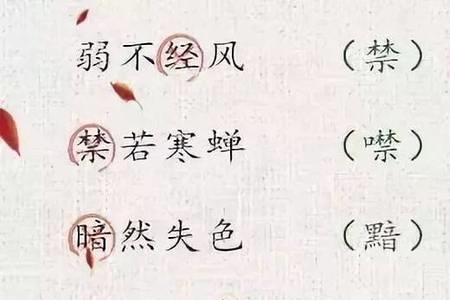 弱不经风 （禁）
禁若寒蝉 （噤）
暗然失色 （黯）